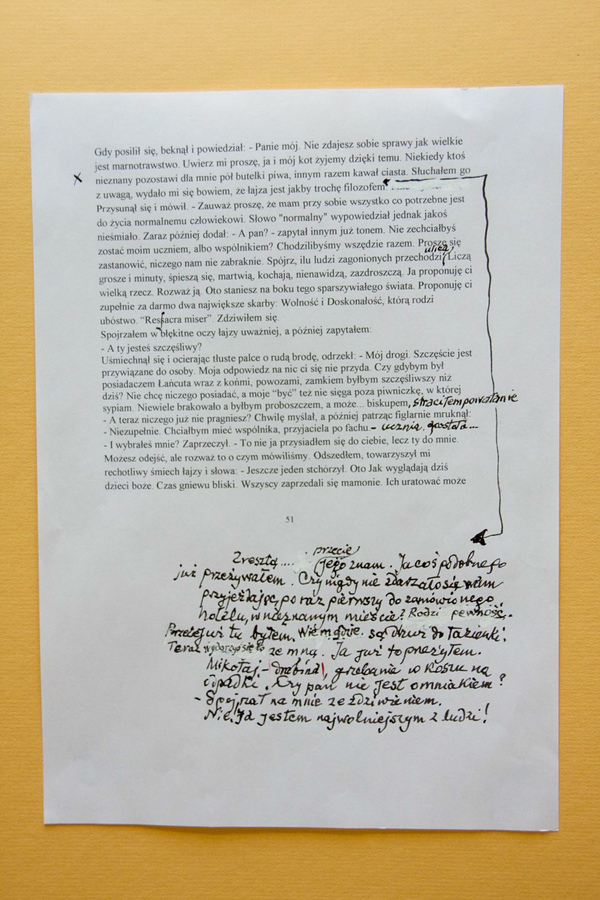 Gdy posilił się, beknął i powiedział: - Panie mój. Nie zdajesz sobie sprawy jak wielkie
jest marnotrawstwo. Uwierz mi proszę, ja i mój kot żyjemy dzięki temu. Niekiedy ktoś
x nieznany pozostawi dla mnie pół butelki piwa, innym razem kawał ciasta. Słuchałem go
z uwagą, wydało mi się bowiem, że łajza jest jakby trochę filozofem.
Przysunął się i mówił. - Zauważ proszę, że mam przy sobie wszystko co potrzebne jest
do życia normalnemu człowiekowi. Słowo "normalny" wypowiedział jednak jakoś
nieśmiało. Zaraz później dodał: - A pan? - zapytał innym już tonem. Nie zechciałbyś
zostać moim uczniem, albo wspólnikiem? Chodzilibyśmy wszędzie razem. Proszę się
ulicą,
zastanowić, niczego nam nie zabraknie. Spójrz, ilu ludzi zagonionych przechodzi. Liczą
grosze i minuty, śpieszą się, martwią, kochają, nienawidzą, zazdroszczą. Ja proponuję ci
wielką rzecz. Rozważ ją. Oto staniesz na boku tego sparszywiałego świata. Proponuję ci
zupełnie za darmo dwa największe skarby: Wolność i Doskonałość, którą rodzi
ubóstwo. "Ressacra miser". Zdziwiłem się.
Spojrzałem w błękitne oczy łajzy uważniej, a później zapytałem:
- A ty jesteś szczęśliwy?
Uśmiechnął się i ocierając tłuste palce o rudą brodę, odrzekł: - Mój drogi. Szczęście jest
przywiązane do osoby. Moja odpowiedź na nic ci się nie przyda. Czy gdybym był
posiadaczem Łańcuta wraz z końmi, powozami, zamkiem byłbym szczęśliwszy niż
dziś? Nie chcę niczego posiadać, a moje "być" też nie sięga poza piwniczkę, w której
sypiam. Niewiele brakowało a byłbym proboszczem, a może... biskupem, straciłem powołanie
- A teraz niczego już nie pragniesz? Chwilę myślał, a później patrząc figlarnie mruknął:
- Niezupełnie. Chciałbym mieć wspólnika, przyjaciela po fachu - ucznia,
- I wybrałeś mnie? Zaprzeczył. - To nie ja przysiadłem się do ciebie, lecz ty do mnie.
Możesz odejść, ale rozważ to o czym mówiliśmy. Odszedłem, towarzyszył mi
rechotliwy śmiech łajzy i słowa: - Jeszcze jeden stchórzył. Oto Jak wyglądają dziś
dzieci boże. Czas gniewu bliski. Wszyscy zaprzedali się mamonie. Ich uratować może
51
przecie
Zresztą.... jego znam. Ja coś podobnego
już przeżywałem. Czy nigdy nie zdarzało się wam
przyjeżdżając, po raz pierwszy do zamówionego
hotelu, w nieznanym mieście? Rodzi pewność.
Przecież już tu byłem, wiem gdzie są drzwi do łazienki.
Teraz ze mną. Ja już to przeżyłem.
Mikołaj - drabina, grzebanie w koszu na
odpadki. Czy pan nie jest omniakiem?
- Spojrzał na mnie ze zdziwieniem.
Nie, ja jestem najwolniejszym z ludzi!